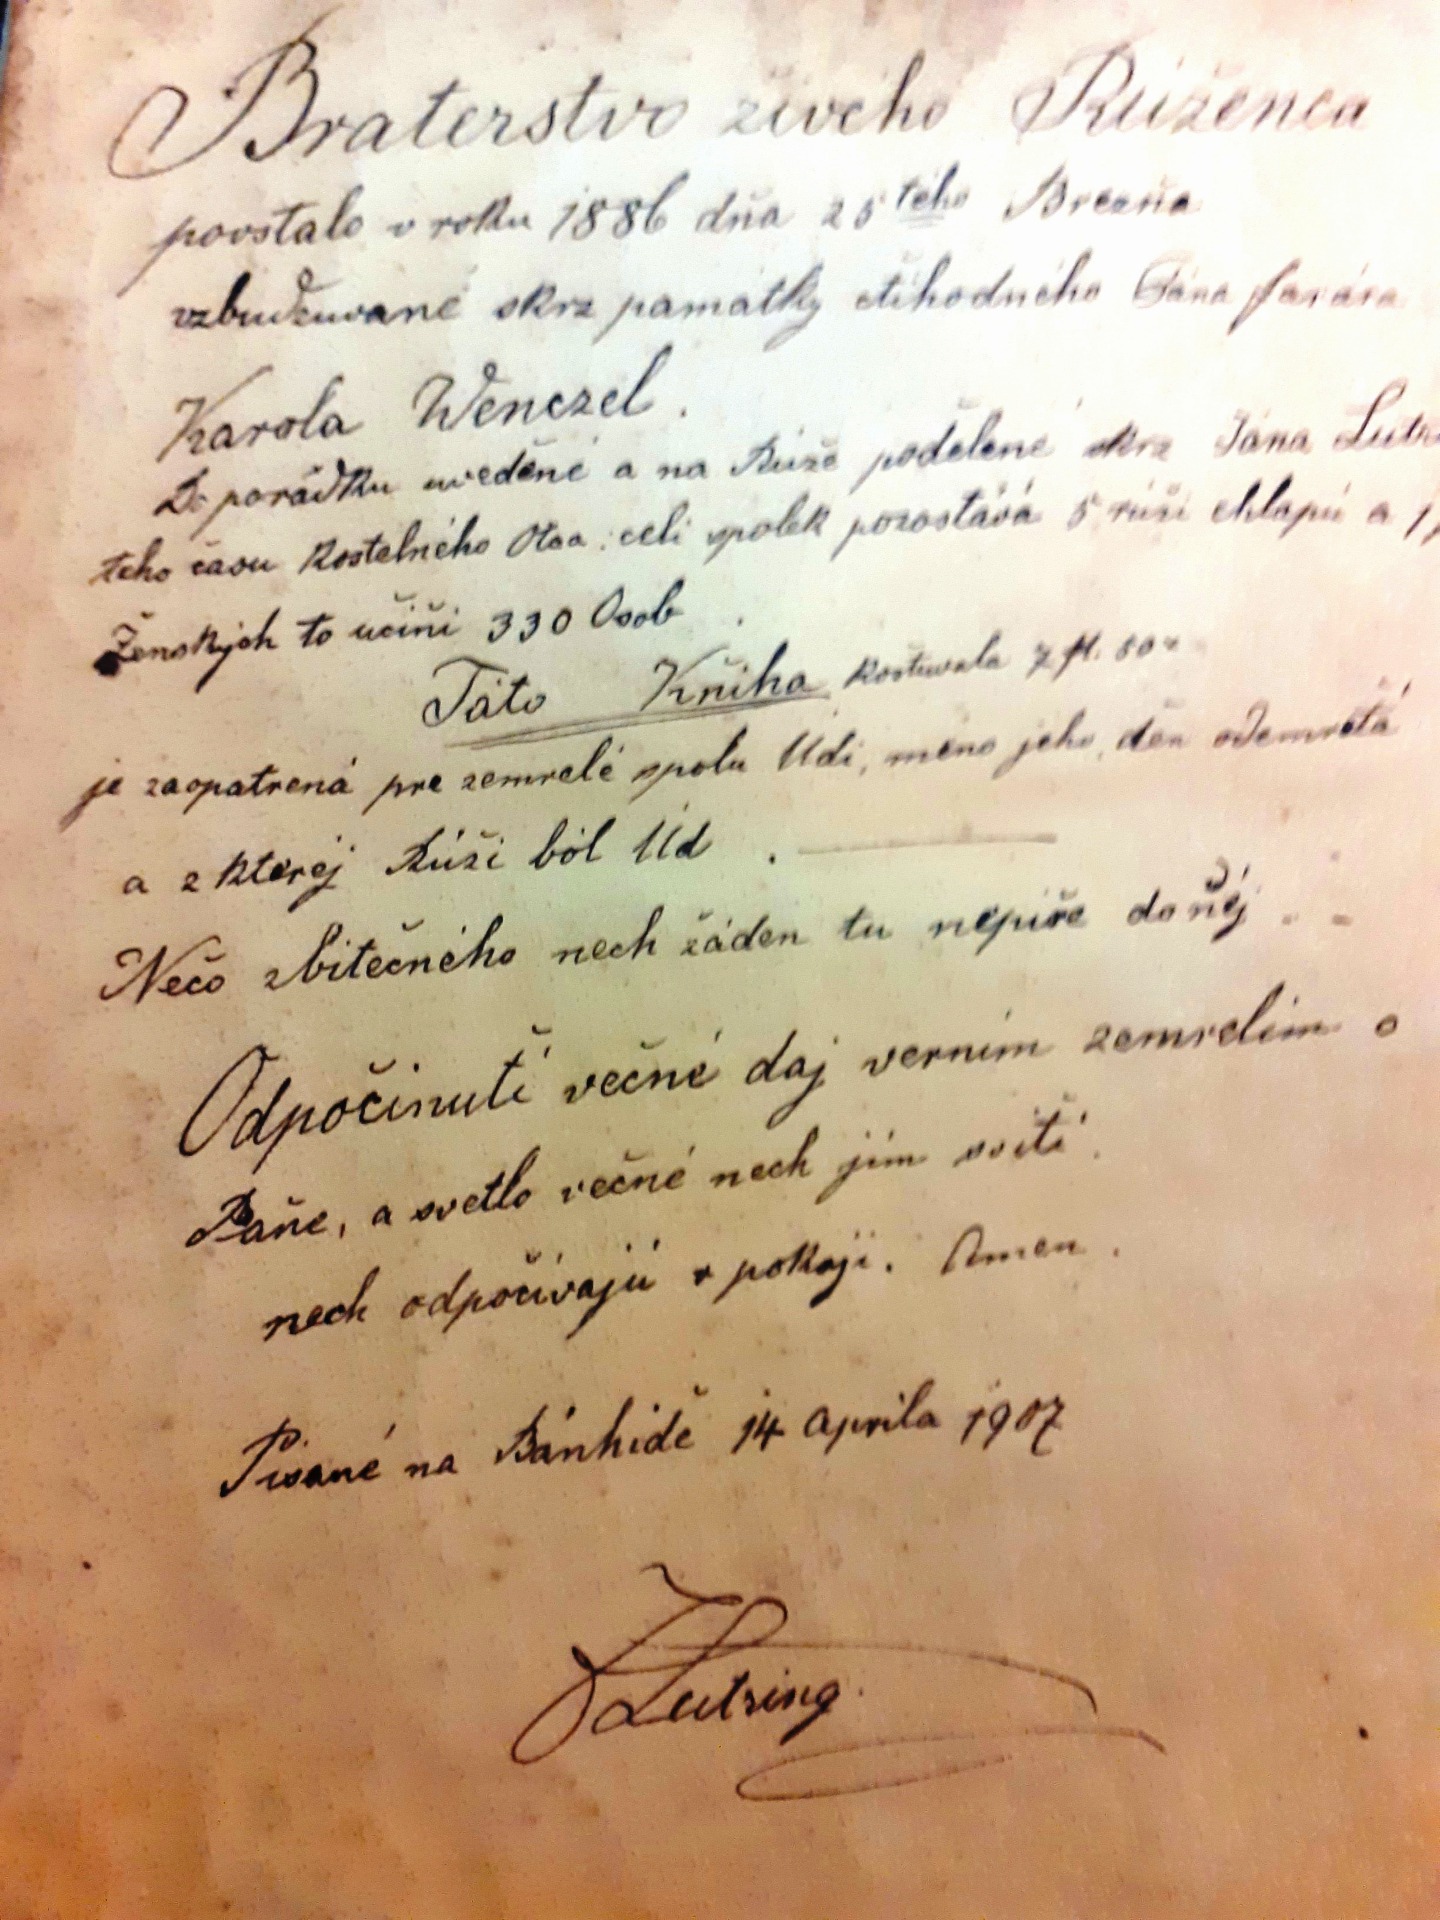 Braterstvo živého Růženca
povstalo v roku 1886 dňa 25tého Brezňa
vzbudzuvané skrz památky ctihodného Pána farára
Karola Wenczel.
Do porádku uvedené a na Růže podelené skrz Jána
teho času Kostelného Otca. celi spolek pozostává 5 růži chlapů a
Ženských to učiňi 330 Osob.
Táto Kňiha kostuvala 7 fl.
je zaopatrená pre zemrelé spolu Údi, méno jeho, den odemretá
a z kterej Růži ból Úd. —
Nečo zbitečného nech žáden tu nepíše do ňéj. - -
Odpočinuťí večné daj verním zemrelím o
Paňe, a svetlo večné nech jím svítí.
nech odpočívajú v pokoji. Amen.
Písané na Bánhidě 14 Aprila 1907
JLutring